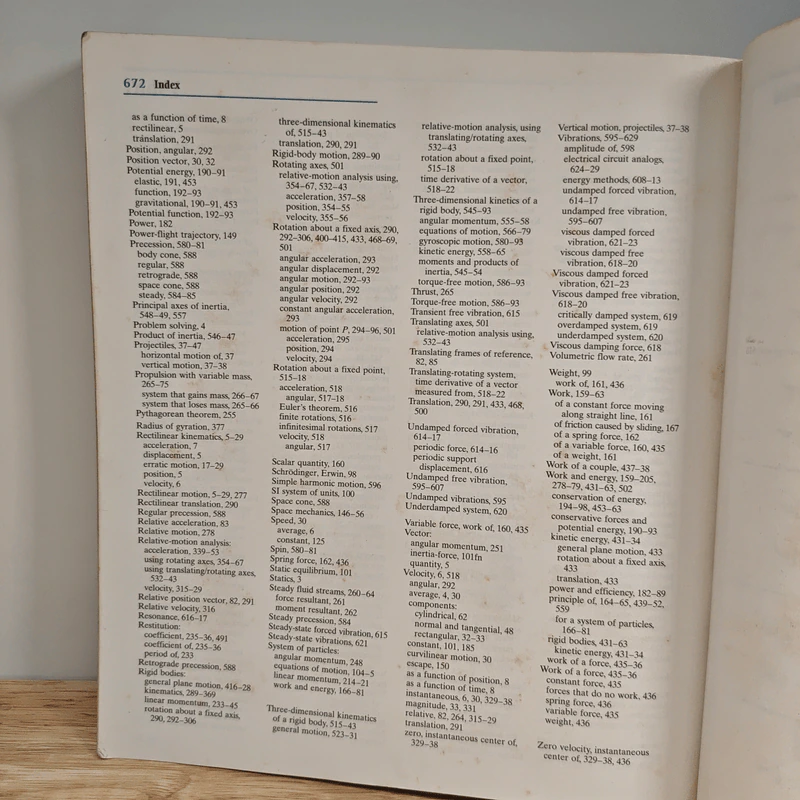 672 Index
as a function of time, 8
rectilinear, 5
translation, 291
Position, angular, 292
Position vector, 30, 32
Potential energy, 190–91
elastic, 191, 453
function, 192–93
gravitational, 190–91, 453
Potential function, 192–93
Power, 182
Power-flight trajectory, 149
Precession, 580–81
body cone, 588
regular, 588
retrograde, 588
space cone, 588
steady, 584–85
Principal axes of inertia,
548–49, 557
Problem solving, 4
Product of inertia, 546–47
Projectiles, 37–47
horizontal motion of, 37
vertical motion, 37–38
Propulsion with variable mass,
265–75
system that gains mass, 266–67
system that loses mass, 265–66
Pythagorean theorem, 255
Radius of gyration, 377
Rectilinear kinematics, 5–29
acceleration, 7
displacement, 5
erratic motion, 17–29
position, 5
velocity, 6
Rectilinear motion, 5–29, 277
Rectilinear translation, 290
Regular precession, 588
Relative acceleration, 83
Relative motion, 278
Relative-motion analysis:
acceleration, 339–53
using rotating axes, 354–67
using translating/rotating axes,
532–43
velocity, 315–29
Relative position vector, 82, 291
Relative velocity, 316
Resonance, 616–17
Restitution:
coefficient, 235–36, 491
coefficient of, 235–36
period of, 233
Retrograde precession, 588
Rigid bodies:
general plane motion, 416–28
kinematics, 289–369
linear momentum, 233–45
rotation about a fixed axis,
290, 292–306
three-dimensional kinematics
of, 515–43
translation, 290, 291
Rigid-body motion, 289–90
Rotating axes, 501
relative-motion analysis using,
354–67, 532–43
acceleration, 357–58
position, 354–55
velocity, 355–56
Rotation about a fixed axis, 290,
292–306, 400–415, 433, 468–69,
501
angular acceleration, 293
angular displacement, 292
angular motion, 292–93
angular position, 292
angular velocity, 292
constant angular acceleration,
293
motion of point P, 294–96, 501
acceleration, 295
position, 294
velocity, 294
Rotation about a fixed point,
515–18
acceleration, 518
angular, 517–18
Euler's theorem, 516
finite rotations, 516
infinitesimal rotations, 517
velocity, 518
angular, 517
Scalar quantity, 160
Schrödinger, Erwin, 98
Simple harmonic motion, 596
SI system of units, 100
Space cone, 588
Space mechanics, 146–56
Speed, 30
average, 6
constant, 125
Spin, 580–81
Spring force, 162, 436
Static equilibrium, 101
Statics, 3
Steady fluid streams, 260–64
force resultant, 261
moment resultant, 262
Steady precession, 584
Steady-state forced vibration, 615
Steady-state vibrations, 621
System of particles:
angular momentum, 248
equations of motion, 104–5
linear momentum, 214–21
work and energy, 166–81
Three-dimensional kinematics
of a rigid body, 515–43
general motion, 523–31
relative-motion analysis, using
translating/rotating axes,
532–43
rotation about a fixed point,
515–18
time derivative of a vector,
518–22
Three-dimensional kinetics of a
rigid body, 545–93
angular momentum, 555–58
equations of motion, 566–79
gyroscopic motion, 580–93
kinetic energy, 558–65
moments and products of
inertia, 545–54
torque-free motion, 586–93
Thrust, 265
Torque-free motion, 586–93
Transient free vibration, 615
Translating axes, 501
relative-motion analysis using,
532–43
Translating frames of reference,
82, 85
Translating-rotating system,
time derivative of a vector
measured from, 518–22
Translation, 290, 291, 433, 468,
500
Undamped forced vibration,
614–17
periodic force, 614–16
periodic support
displacement, 616
Undamped free vibration,
595–607
Undamped vibrations, 595
Underdamped system, 620
Variable force, work of, 160, 435
Vector:
angular momentum, 251
inertia-force, 101fn
quantity, 5
Velocity, 6, 518
angular, 292
average, 4, 30
components:
cylindrical, 62
normal and tangential, 48
rectangular, 32–33
constant, 101, 185
curvilinear motion, 30
escape, 150
as a function of position, 8
as a function of time, 8
instantaneous, 6, 30, 329–38
magnitude, 33, 331
relative, 82, 264, 315–29
translation, 291
zero, instantaneous center of,
329–38
Vertical motion, projectiles, 37–38
Vibrations, 595–629
amplitude of, 598
electrical circuit analogs,
624–29
energy methods, 608–13
undamped forced vibration,
614–17
undamped free vibration,
595–607
viscous damped forced
vibration, 621–23
viscous damped free
vibration, 618–20
Viscous damped forced
vibration, 621–23
Viscous damped free vibration,
618–20
critically damped system, 619
overdamped system, 619
underdamped system, 620
Viscous damping force, 618
Volumetric flow rate, 261
Weight, 99
work of, 161, 436
Work, 159–63
of a constant force moving
along straight line, 161
of friction caused by sliding, 167
of a spring force, 162
of a variable force, 160, 435
of a weight, 161
Work of a couple, 437–38
Work and energy, 159–205,
278–79, 431–63, 502
conservation of energy,
194–98, 453–63
conservative forces and
potential energy, 190–93
kinetic energy, 431–34
general plane motion, 433
rotation about a fixed axis,
433
translation, 433
power and efficiency, 182–89
principle of, 164–65, 439–52,
559
for a system of particles,
166–81
rigid bodies, 431–63
kinetic energy, 431–34
work of a force, 435–36
Work of a force, 435–36
constant force, 435
forces that do no work, 436
spring force, 436
variable force, 435
weight, 436
Zero velocity, instantaneous
center of, 329–38, 436